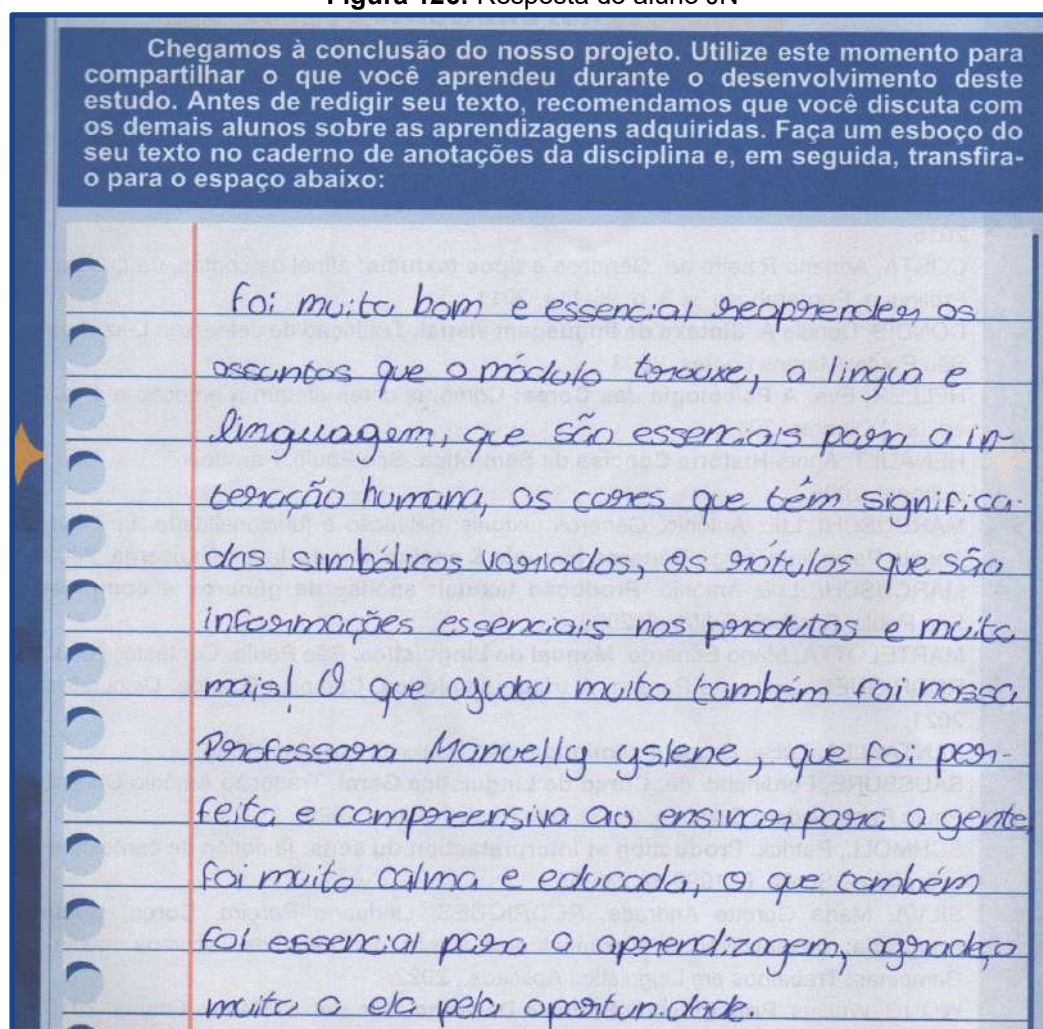 Figura 126. Resposta do aluno JN
Chegamos à conclusão do nosso projeto. Utilize este momento para
compartilhar o que você aprendeu durante o desenvolvimento deste
estudo. Antes de redigir seu texto, recomendamos que você discuta com
os demais alunos sobre as aprendizagens adquiridas. Faça um esboço do
seu texto no caderno de anotações da disciplina e, em seguida, transfira-
o para o espaço abaixo:
Foi muito bom e essencial reaprender os
assuntos que o módulo trouxe, a língua e
linguagem, que são essenciais para a in-
teração humana, as cores que têm significa-
dos simbólicos variados, os rótulos que são
informações essenciais nos produtos e muito
mais! O que ajudou muito também foi nossa
Professora Manuelly gyslene, que foi per-
feita e compreensiva ao ensinar para a gente,
foi muito calma e educada, o que também
foi essencial para a aprendizagem, agradeço
muito a ela pela oportunidade.